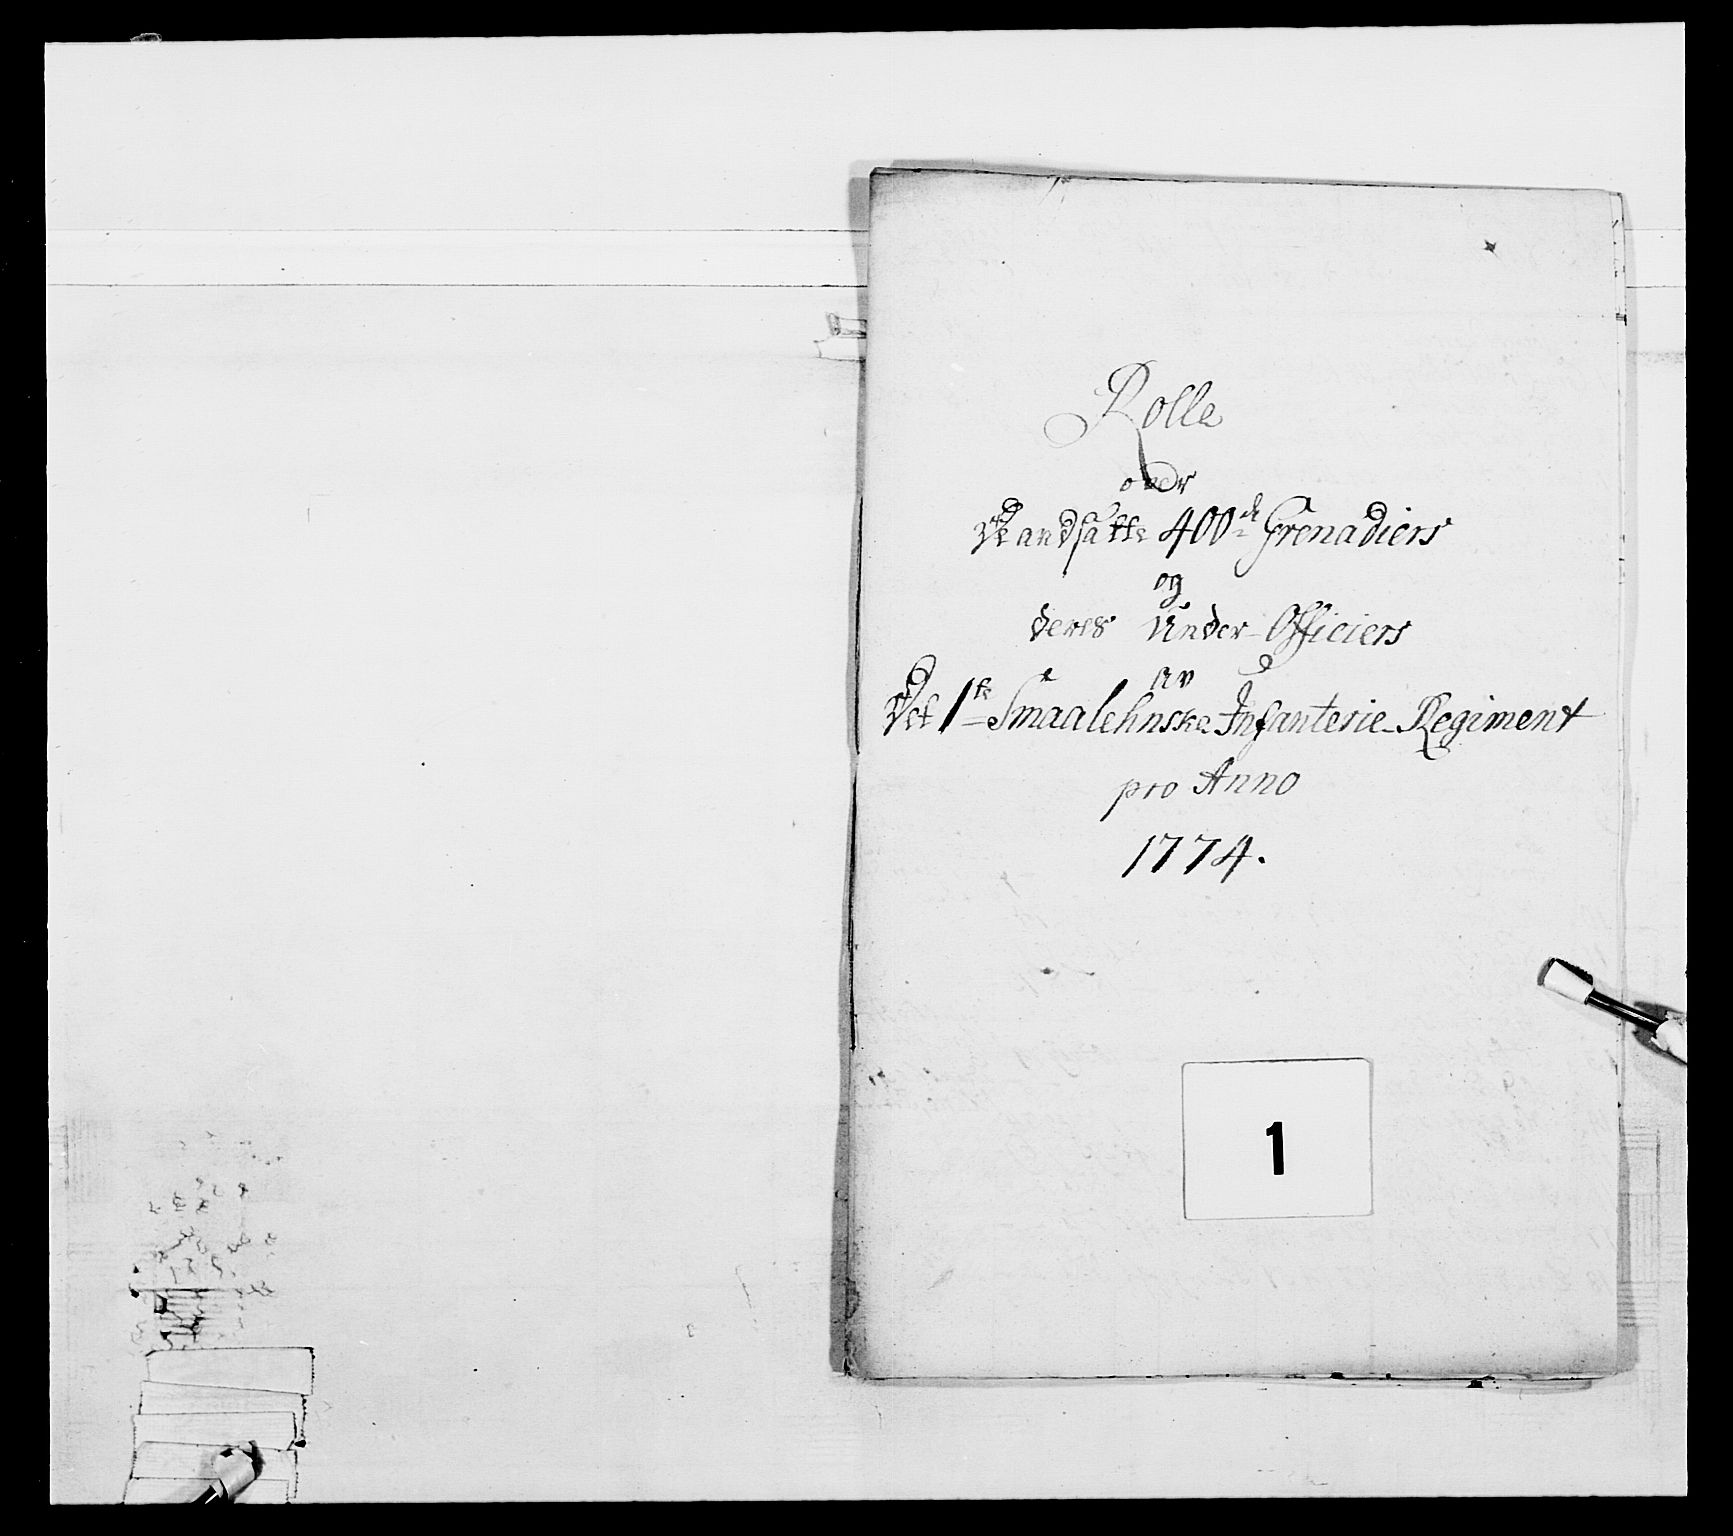 Rolle
over
De ansatte 400de Grenadiers
og
deres Under-Officiers
av
Det 1te Smaalehnske Infanterie-Regiment
pro Anno
1774.
1